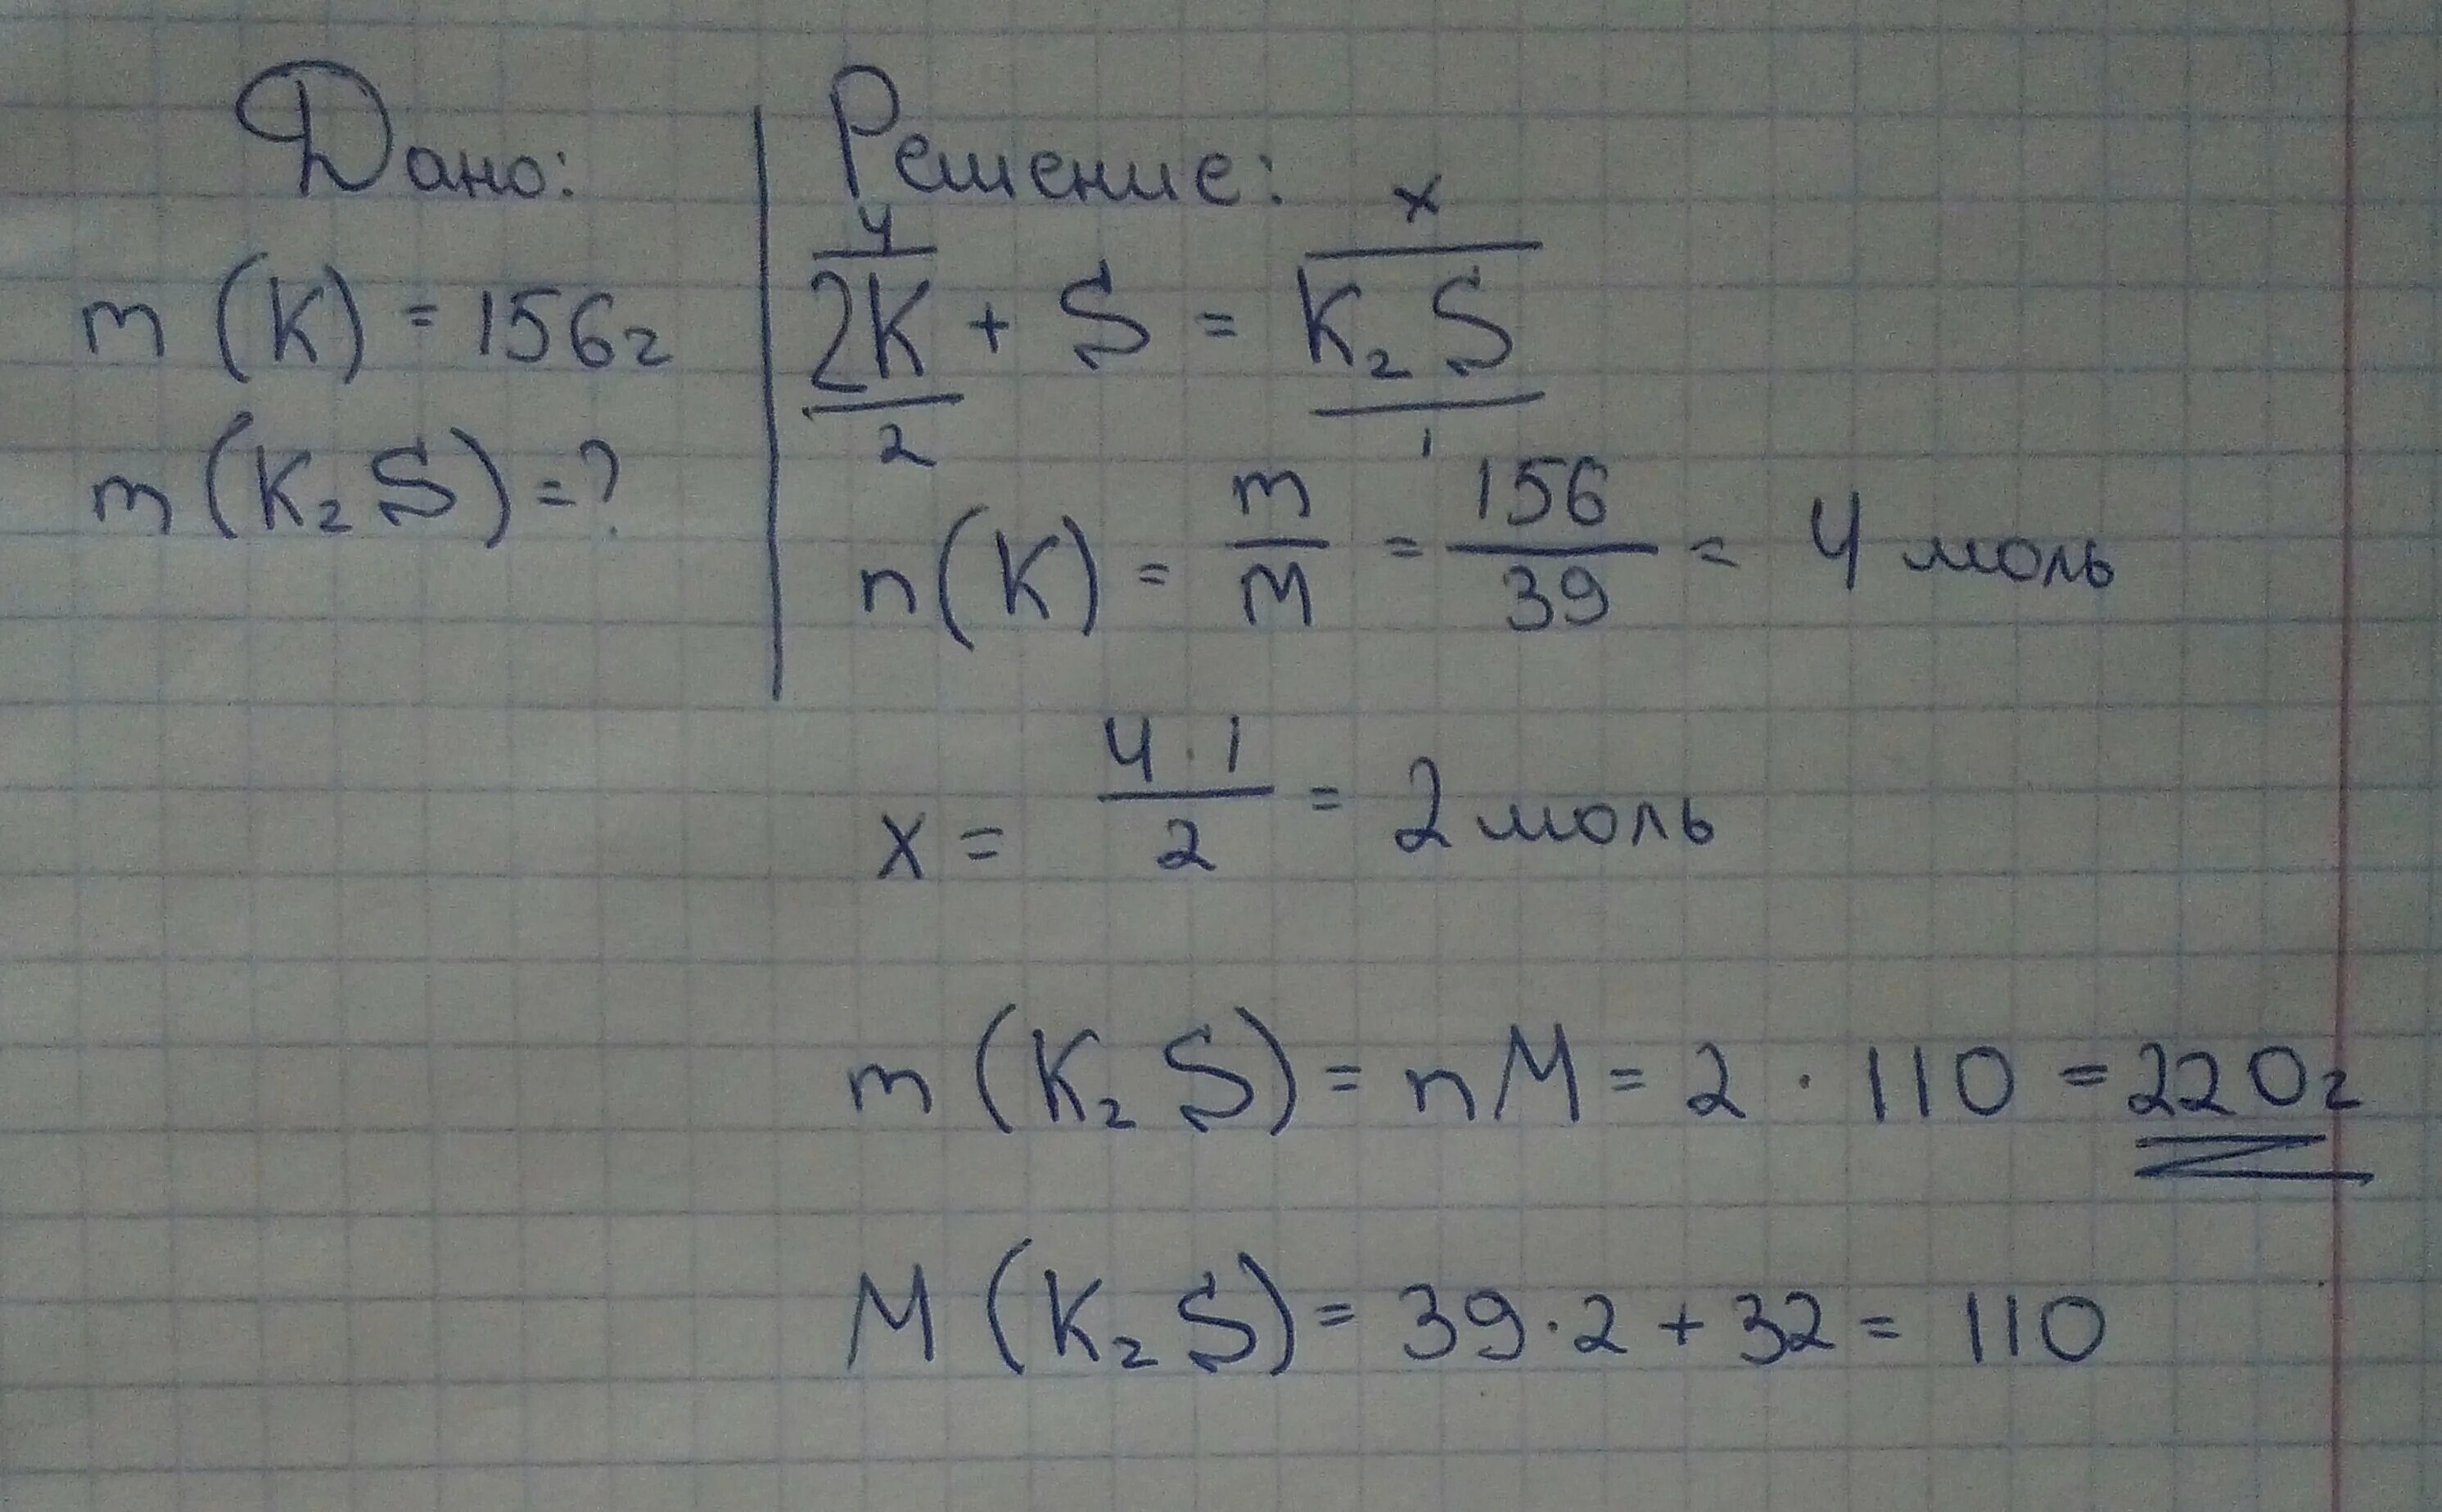 Дано:
m (K) = 156г
m (K₂S) = ?
Решение:
4 x
2K + S = K₂S
2 1
n(K) = m/M = 156/39 = 4 моль
x = 4·1/2 = 2 моль
m (K₂S) = nM = 2 · 110 = 220г
M (K₂S) = 39·2 + 32 = 110